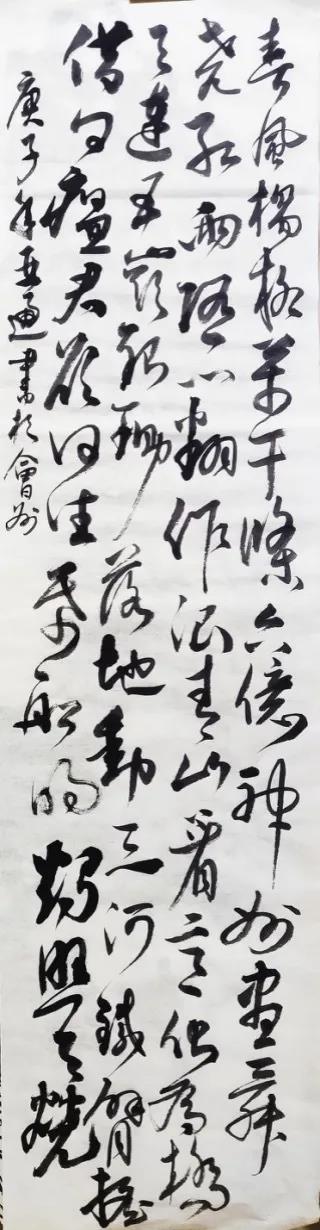 春風楊柳萬千條六億神州盡舜
堯紅雨随心翻作浪青山着意化為橋
天連五嶺銀鋤落地動三河鐵臂摇
借问瘟君欲何往紙船明燭照天燒
庚子年亞通書於會州